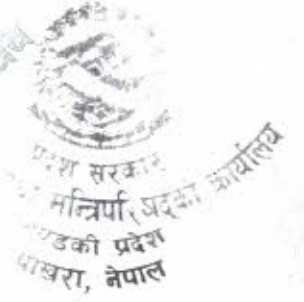 प्रदेश सरकार
मन्त्रिपरिषद्को कार्यालय
गण्डकी प्रदेश
पोखरा, नेपाल